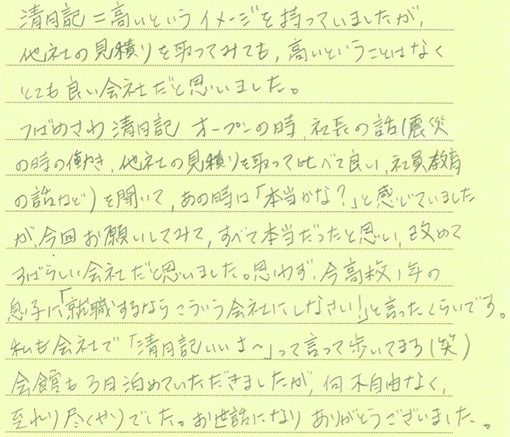 清月記＝高いというイメージを持っていましたが、
他社の見積りを取ってみても、高いということはなく
とても良い会社だと思いました。
つばめさわ清月記 オープンの時、社長の話(震災
の時の働き、他社の見積りを取って比べて良い、社員教育
の話など)を聞いて、あの時は「本当かな？」と感じていました
が、今回お願いしてみて、すべて本当だったと思い、改めて
すばらしい会社だと思いました。思わず、今高校1年の
息子に「就職するならこういう会社にしなさい!」と言ったくらいです。
私も会社で「清月記いいよ～」って言って歩いてます(笑)
会館も3日泊めていただきましたが、何不自由なく、
至れり尽くせりでした。お世話になりありがとうございました。